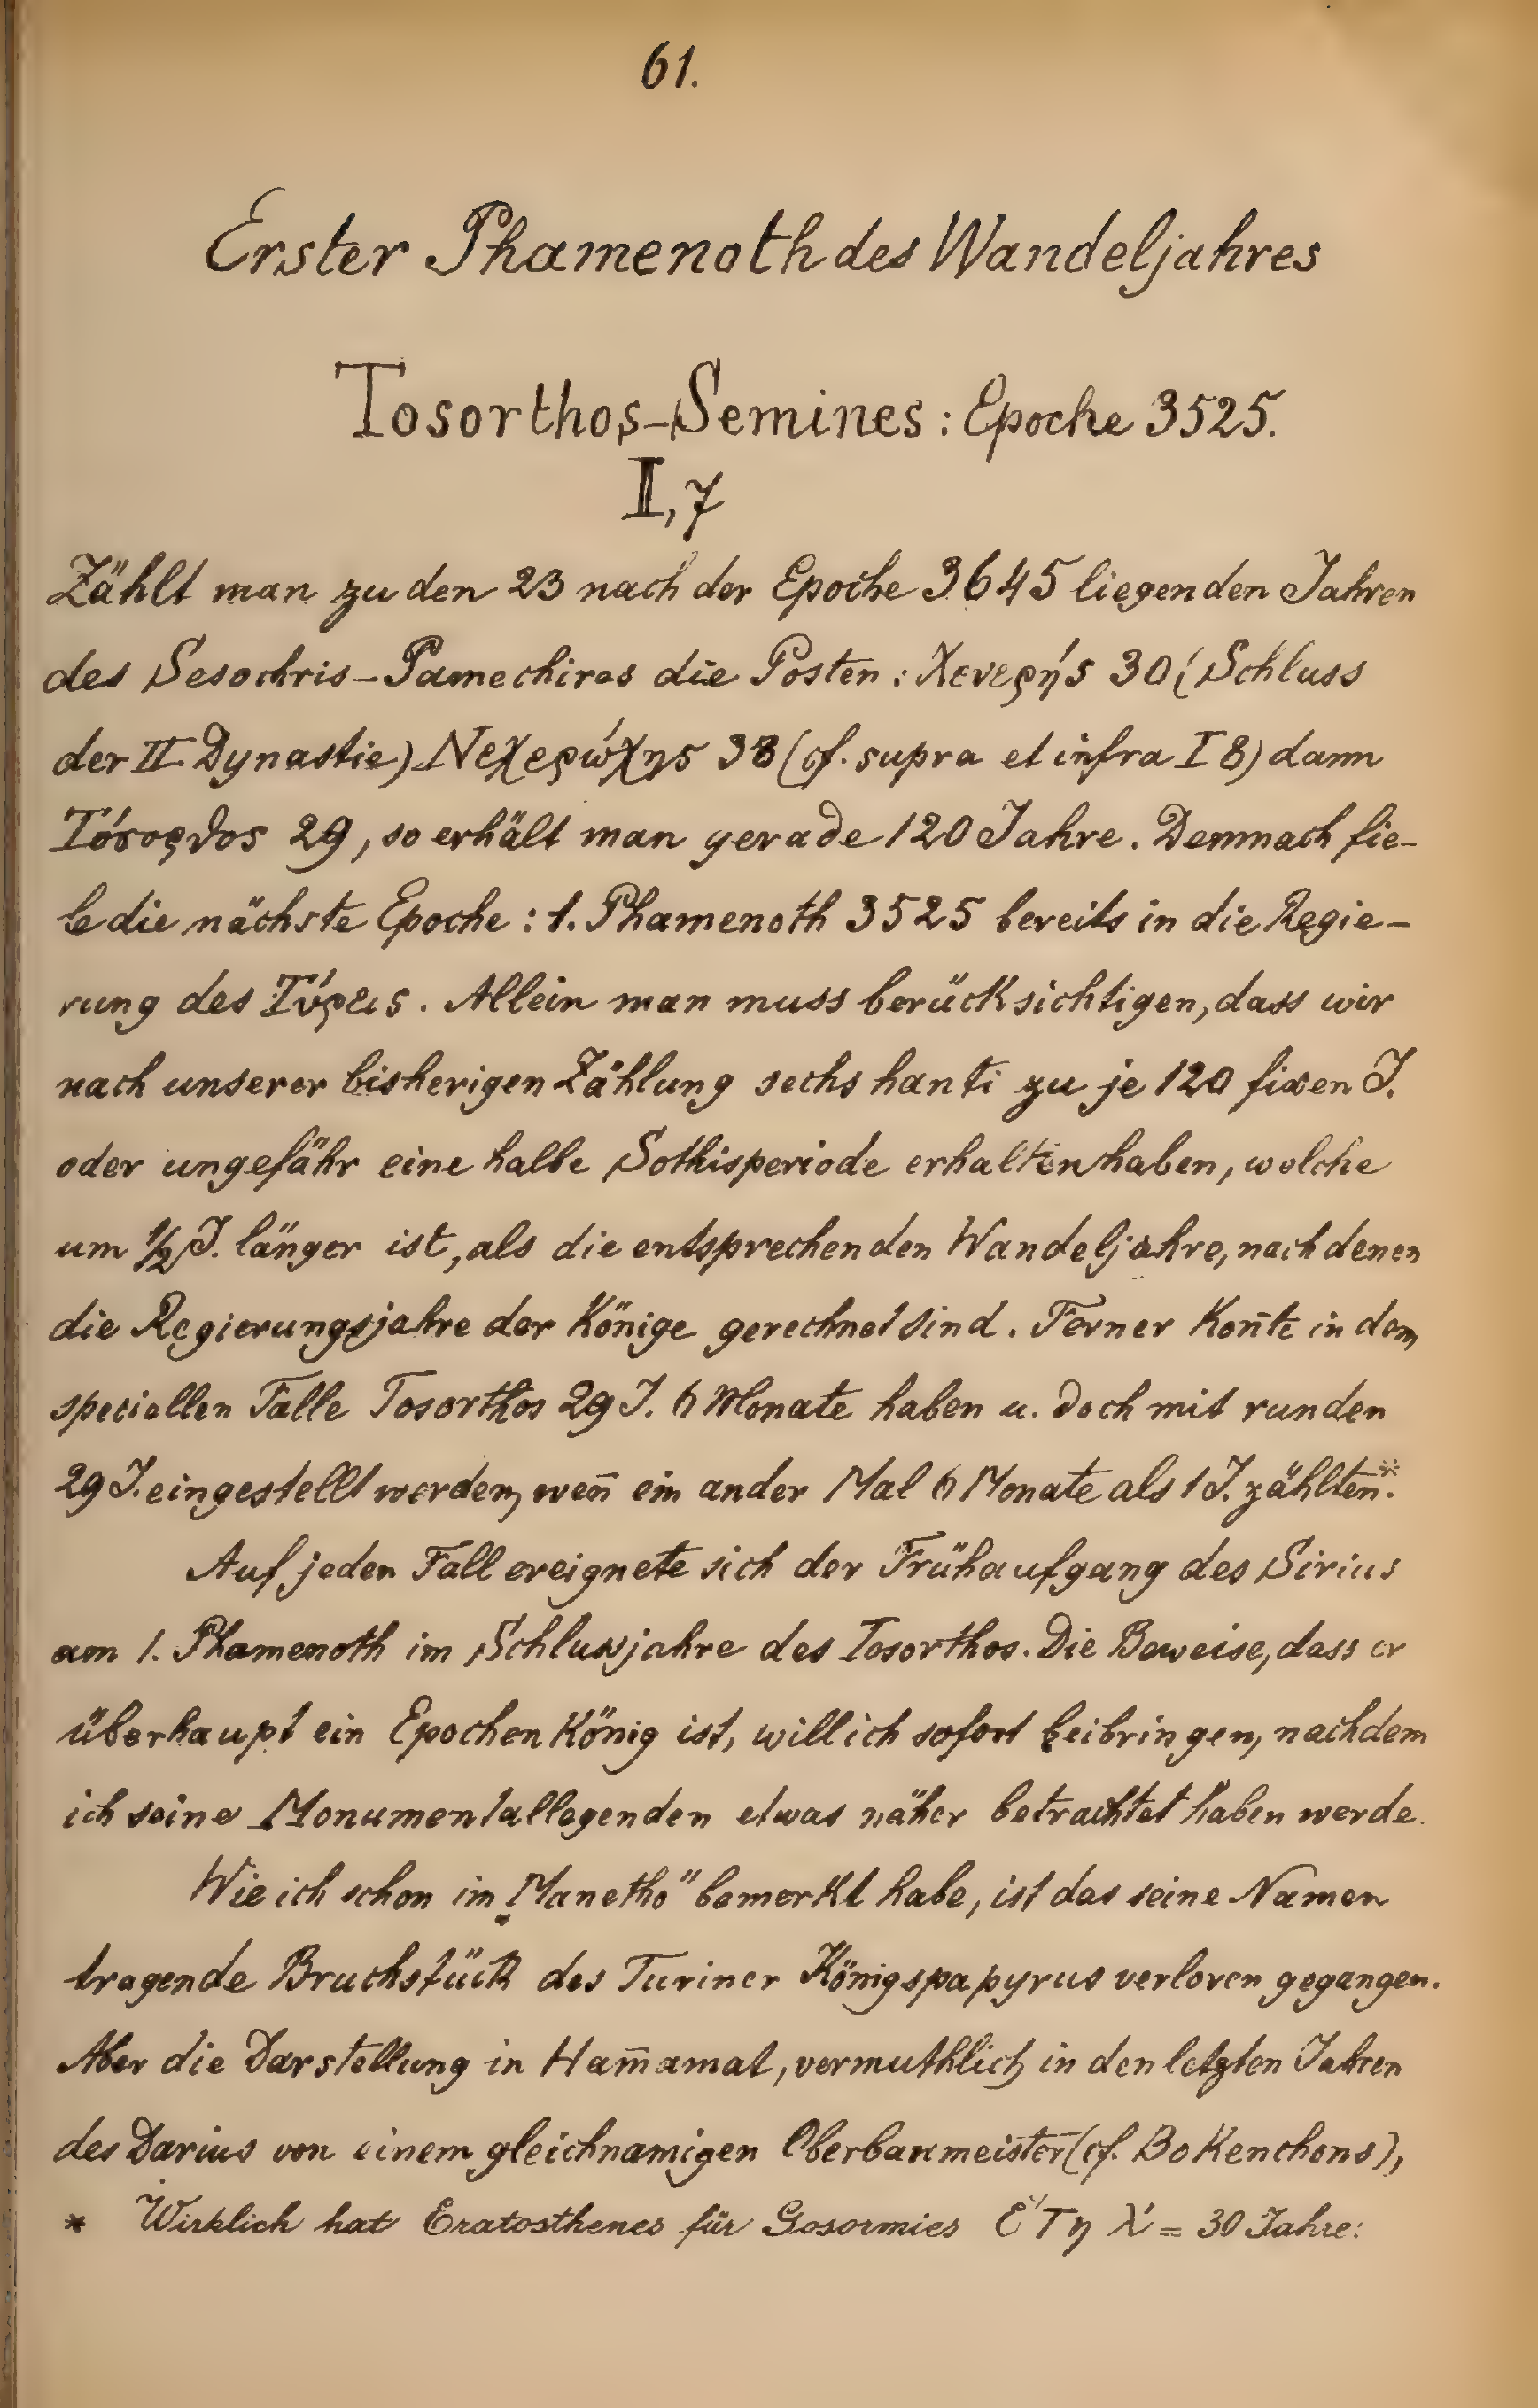 61.
Erster Phamenoth des Wandeljahres
Tosorthos-Semines: Epoche 3525.
II, 7
Zählt man zu den 23 nach der Epoche 3645 liegenden Jahren
des Sesochris-Pamechires die Posten: Χενερής 30 (Schluss
der II. Dynastie) Νεχερώχης 38 (cf. supra et infra I 8) dann
Τόσορθος 29, so erhält man gerade 120 Jahre. Demnach fie-
le die nächste Epoche: 1. Phamenoth 3525 bereits in die Regie-
rung des Τύρεις. Allein man muss berücksichtigen, dass wir
nach unserer bisherigen Zählung sechs hanti zu je 120 fixen J.
oder ungefähr eine halbe Sothisperiode erhalten haben, welche
um ½ J. länger ist, als die entsprechenden Wandeljahre, nach denen
die Regierungsjahre der Könige gerechnet sind. Ferner kon̄te in dem
speciellen Falle Tosorthos 29 J. 6 Monate haben u. doch mit runden
29 J. eingestellt werden, wen̄ ein ander Mal 6 Monate als 1 J. zählten.*
Auf jeden Fall ereignete sich der Frühaufgang des Sirius
am 1. Phamenoth im Schlussjahre des Tosorthos. Die Beweise, dass er
überhaupt ein Epochenkönig ist, will ich sofort beibringen, nachdem
ich seine Monumentallegenden etwas näher betrachtet haben werde.
Wie ich schon im „Manetho" bemerkt habe, ist das seine Namen
tragende Bruchstück des Turiner Königspapyrus verloren gegangen.
Aber die Darstellung in Ham̄amat, vermuthlich in den letzten Jahren
des Darius von einem gleichnamigen Oberbaumeister (cf. Bokenchons),
* Wirklich hat Eratosthenes für Gosormies ἔτη λ' = 30 Jahre: